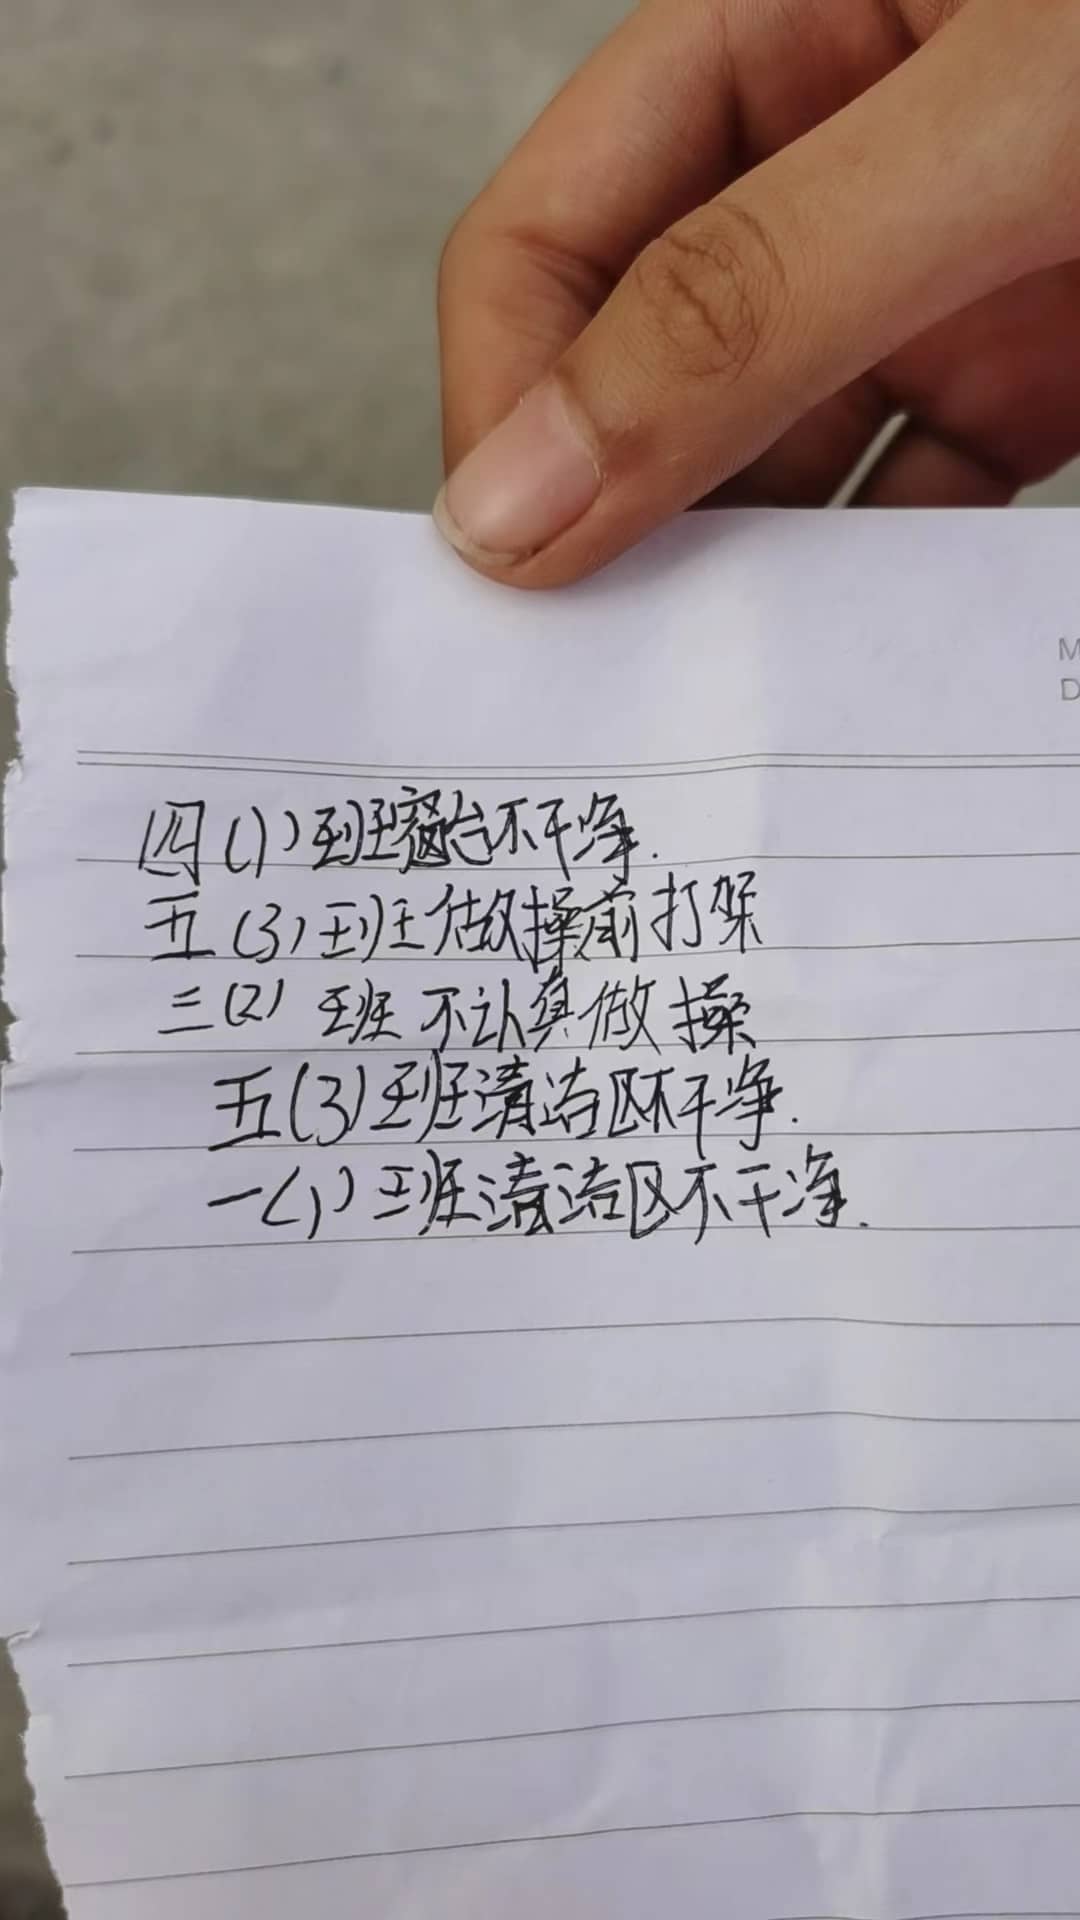 M
D
四(1)班窗台不干净.
五(3)班做操前打架
三(2)班不认真做操
五(3)班清洁区不干净.
一(1)班清洁区不干净.